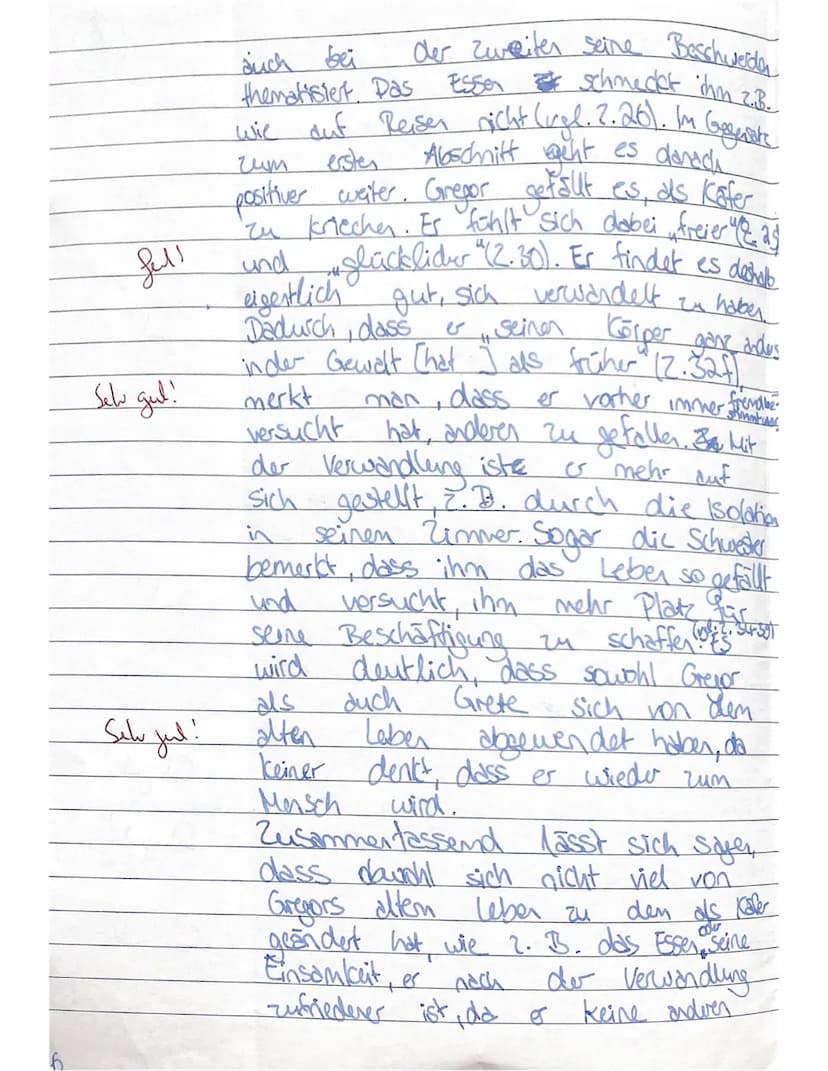 auch bei der zweiten seine Beschwerden
thematisiert. Das Essen schmeckt ihm z.B.
wie auf Reisen nicht (vgl. Z. 26). Im Gegensatz
zum ersten Abschnitt geht es danach
positiver weiter. Gregor gefällt es, als Käfer
zu kriechen. Er fühlt sich dabei „freier" (Z. 29)
gut!
und „glücklicher" (Z. 30). Er findet es deshalb
eigentlich gut, sich verwandelt zu haben.
Dadurch, dass er „seinen Körper ganz anders
in der Gewalt [hat ] als früher" (Z. 32f),
Sehr gut!
merkt man, dass er vorher immer
versucht hat, anderen zu gefallen. Mit
der Verwandlung ist er mehr auf
sich gestellt, z. B. durch die Isolation
in seinem Zimmer. Sogar die Schwester
bemerkt, dass ihm das Leben so gefällt
und versucht, ihm mehr Platz für
seine Beschäftigung zu schaffen. Es
wird deutlich, dass sowohl Gregor
als auch Grete sich von dem
Sehr gut!
alten Leben abgewendet haben, da
keiner denkt, dass er wieder zum
Mensch wird.
Zusammenfassend lässt sich sagen,
dass obwohl sich nicht viel von
Gregors altem Leben zu dem als Käfer
geändert hat, wie z. B. das Essen oder seine
Einsamkeit, er nach der Verwandlung
zufriedener ist, da er keine anderen
6